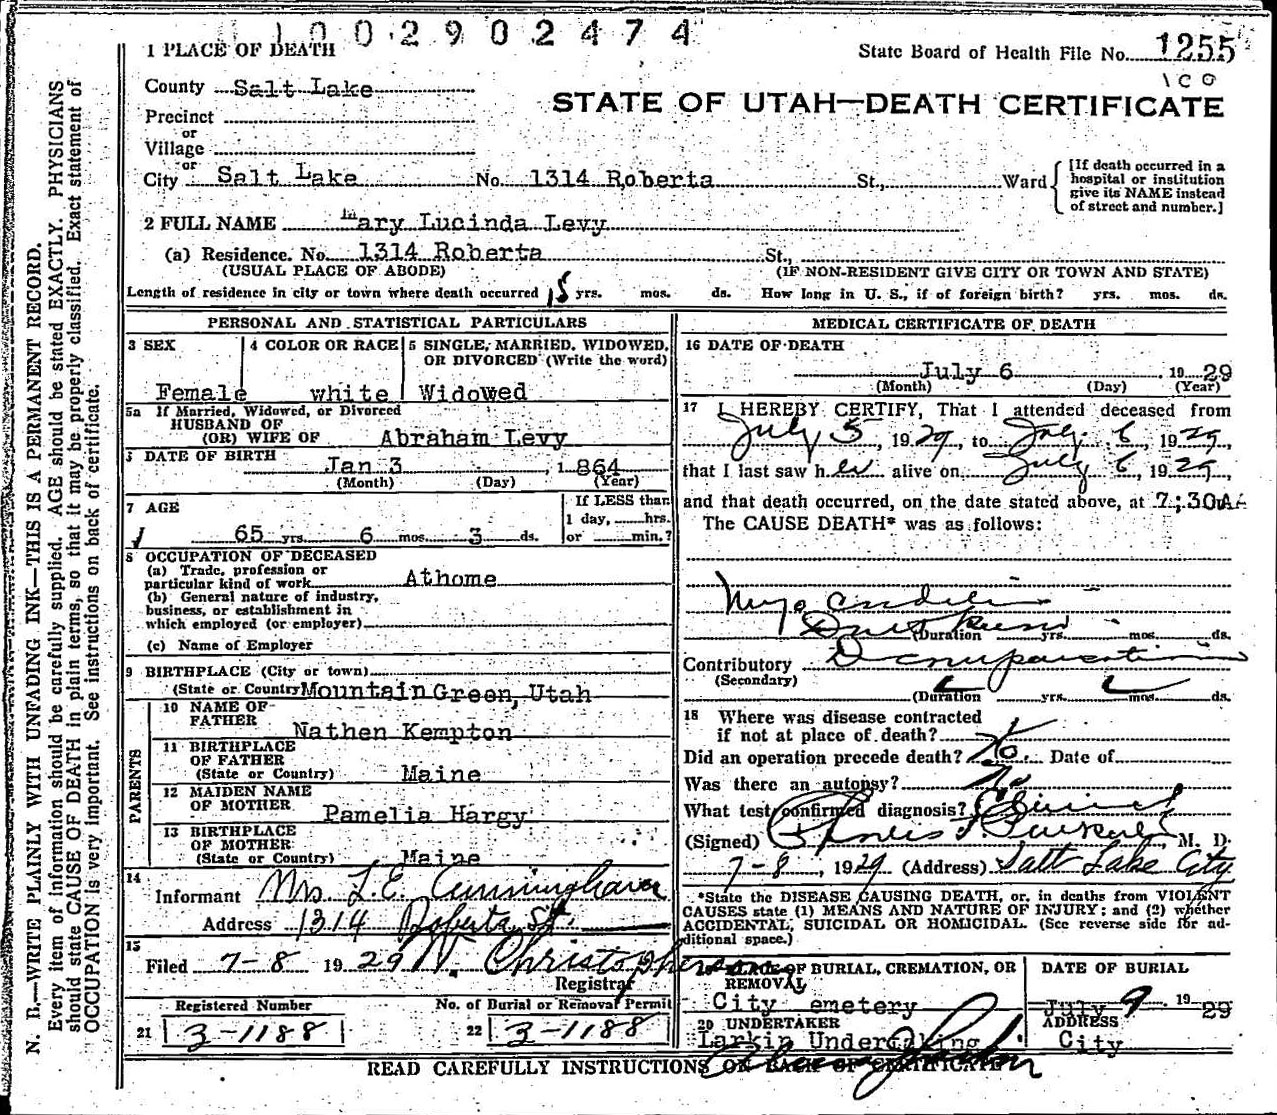 1002902474
1 PLACE OF DEATH
State Board of Health File No. 1255
County Salt Lake
STATE OF UTAH—DEATH CERTIFICATE
Precinct
or
Village
or
City Salt Lake No. 1314 Roberta St., Ward
[If death occurred in a
hospital or institution
give its NAME instead
of street and number.]
2 FULL NAME Mary Lucinda Levy
(a) Residence. No. 1314 Roberta St.,
(USUAL PLACE OF ABODE) (IF NON-RESIDENT GIVE CITY OR TOWN AND STATE)
Length of residence in city or town where death occurred 15 yrs. mos. ds. How long in U. S., if of foreign birth? yrs. mos. ds.
PERSONAL AND STATISTICAL PARTICULARS
3 SEX 4 COLOR OR RACE 5 SINGLE, MARRIED, WIDOWED,
OR DIVORCED (Write the word)
Female white Widowed
5a If Married, Widowed, or Divorced
HUSBAND OF
(OR) WIFE OF Abraham Levy
DATE OF BIRTH
Jan 3, 1864
(Month) (Day) (Year)
7 AGE If LESS than
1 day, hrs.
65 yrs. 6 mos. 3 ds. or min.?
8 OCCUPATION OF DECEASED
(a) Trade, profession or
particular kind of work Athome
(b) General nature of industry,
business, or establishment in
which employed (or employer)
(c) Name of Employer
9 BIRTHPLACE (City or town)
(State or Country Mountain Green, Utah
PARENTS
10 NAME OF
FATHER Nathen Kempton
11 BIRTHPLACE
OF FATHER
(State or Country) Maine
12 MAIDEN NAME
OF MOTHER Pamelia Hargy
13 BIRTHPLACE
OF MOTHER
(State or Country) Maine
14
Informant Mrs. L.E. Cunningham
Address 1314 Roberta St.
15
Filed 7-8 1929 W. Christopherson
Registrar
Registered Number No. of Burial or Removal Permit
21 3-1188 22 3-1188
MEDICAL CERTIFICATE OF DEATH
16 DATE OF DEATH
July 6 1929
(Month) (Day) (Year)
17 I HEREBY CERTIFY, That I attended deceased from
July 5, 1929, to July 6, 1929
that I last saw her alive on July 6, 1929
and that death occurred, on the date stated above, at 7;30A
The CAUSE DEATH* was as follows:
(Duration yrs. mos. ds.
Contributory
(Secondary)
(Duration yrs. mos. ds.
18 Where was disease contracted
if not at place of death?
Did an operation precede death? No Date of
Was there an autopsy? No
What test confirmed diagnosis? Clinical
(Signed) M. D.
7-8, 1929 (Address) Salt Lake City
*State the DISEASE CAUSING DEATH, or, in deaths from VIOLENT
CAUSES state (1) MEANS AND NATURE OF INJURY; and (2) whether
ACCIDENTAL, SUICIDAL OR HOMICIDAL. (See reverse side for ad-
ditional space.)
19 PLACE OF BURIAL, CREMATION, OR
REMOVAL DATE OF BURIAL
City emetery July 9 1929
20 UNDERTAKER ADDRESS
Larkin Undertaking City
READ CAREFULLY INSTRUCTIONS ON BACK OF CERTIFICATE
N. B.—WRITE PLAINLY WITH UNFADING INK—THIS IS A PERMANENT RECORD.
Every item of information should be carefully supplied. AGE should be stated EXACTLY. PHYSICIANS
should state CAUSE OF DEATH in plain terms, so that it may be properly classified. Exact statement of
OCCUPATION is very important. See instructions on back of certificate.